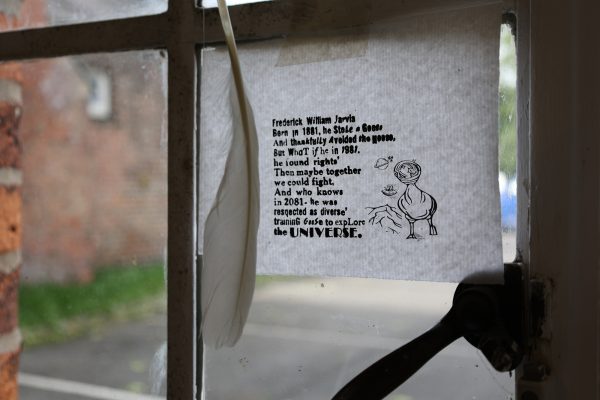 Frederick William Jarvis
Born in 1881, he Stole a Goose
And thankfully Avoided the noose.
But WhoT if he in 1981.
he found rights'
Then maybe together
we could fight.
And who knows
in 2081- he was
respected as diverse'
training Goose to expLore
the UNIVERSE.